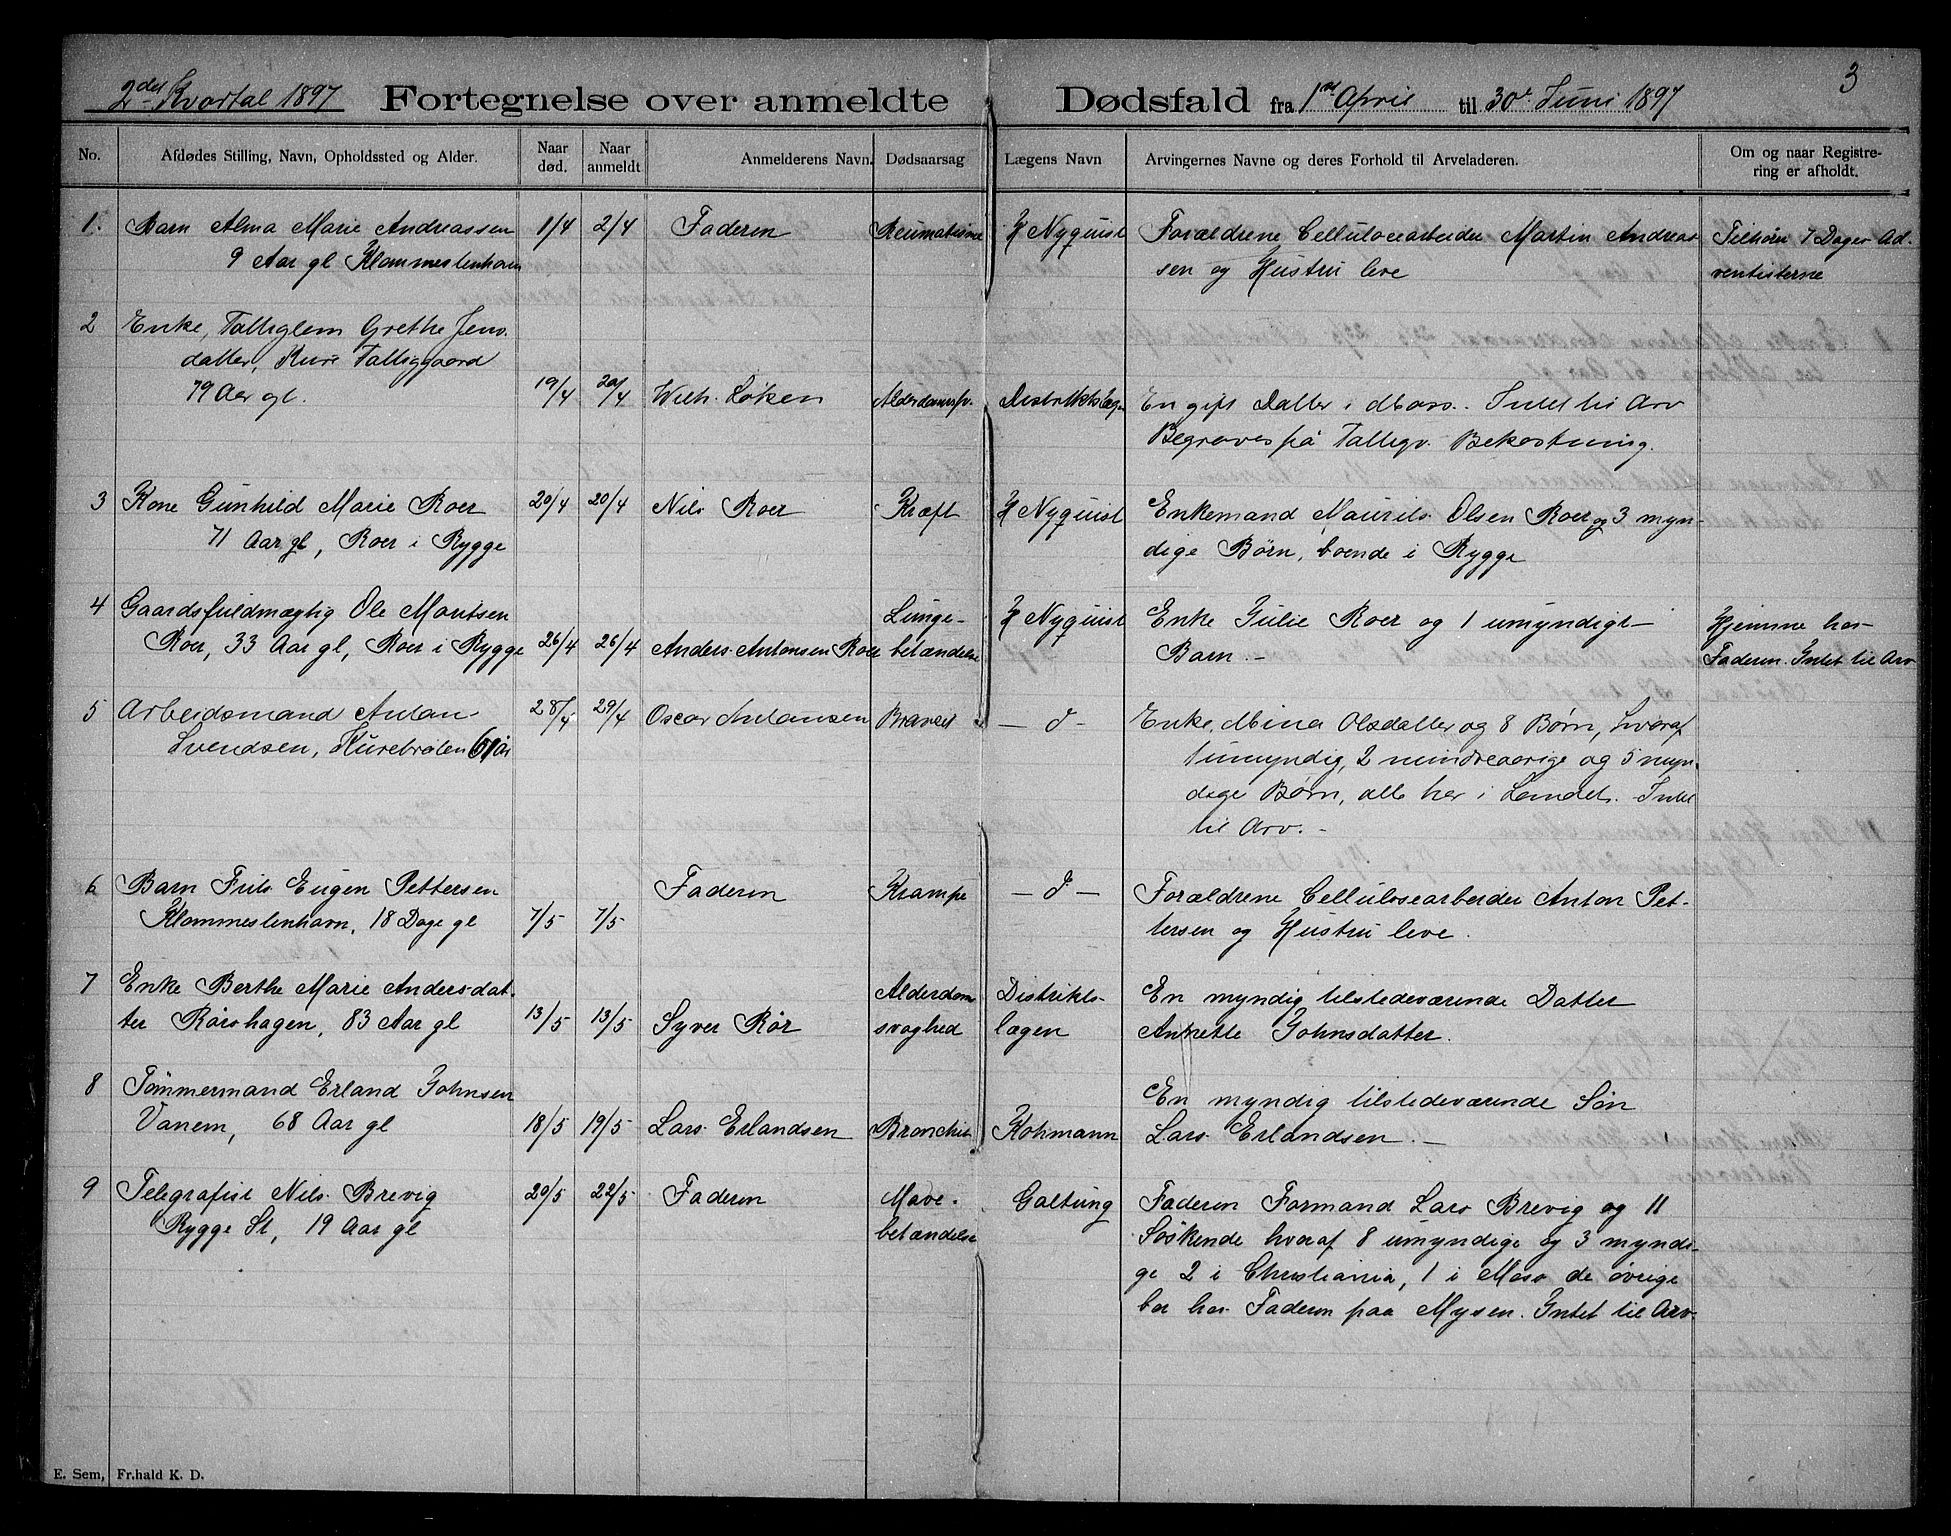 3
2det Kvartal 1897 Fortegnelse over anmeldte Dødsfald fra 1ste April til 30te Juni 1897
No. Afdødes Stilling, Navn, Opholdssted og Alder. Naar død. Naar anmeldt Anmelderens Navn. Dødsaarsag Lægens Navn Arvingernes Navne og deres Forhold til Arveladeren. Om og naar Registre-
ring er afholdt.
1. Barn Alma Marie Andreassen 1/4 2/4 Faderen Reumatisme H Nyquist Forældrene Cellulosearbeider Martin Andreas Tilhøre 7 Dages Ad-
9 Aar gl Klommestenhavn sen og Hustru leve ventisterne
2 Enke, Fattiglem Grethe Jens-
datter, Kure Fattiggaard
79 Aar gl. 19/4 20/4 Wilh. Løken Alderdomssv. Distriktslæg. En gift Datter i Moss. Intet til Arv
Begraves på Fattigv. Bekostning.
3 Kone Gunhild Marie Roer 20/4 20/4 Nils Roer Kræft H Nyquist Enkemand Maurits Olsen Roer og 3 myn-
71 Aar gl, Roer i Rygge dige Børn, boende i Rygge
4 Gaardsfuldmægtig Ole Mauritsen Lunge- H Nyquist Enke Julie Roer og 1 umyndigt Hjemme hos
Roer, 33 Aar gl, Roer i Rygge 26/4 26/4 Anders Antonsen Roer betændelse Barn. - Faderen. Intet til Arv
5 Arbeidsmand Anton 28/4 29/4 Oscar Antonsen - d - Enke, Mina Olsdatter og 8 Børn, hvoraf
Svendsen, Kurebråten 61 år 1 umyndig, 2 mindreaarige og 5 myn-
dige Børn, alle her i Landet. Intet
til Arv. -
6 Barn Frits Eugen Pettersen Faderen Krampe - d - Forældrene Cellulosearbeider Anton Pet-
Klommestenhavn, 18 Dage gl 7/5 7/5 tersen og Hustru leve.
7 Enke Berthe Marie Andersdat- Alderdoms Distrikts- En myndig tilstedeværende Datter
ter Rørshagen, 83 Aar gl 13/5 13/5 Syver Rør svaghed lægen Annette Johnsdatter.
8 Tømmermand Erland Johnsen En myndig tilstedeværende Søn
Vanem, 68 Aar gl 18/5 19/5 Lars Erlandsen Bronchit Kohmann Lars Erlandsen. -
9 Telegrafist Nils Brevig 20/5 22/5 Faderen Mave- Galtung Faderen Formand Lars Brevig og 11
Rygge St, 19 Aar gl betændelse Søskende hvoraf 8 umyndige og 3 myndi-
ge 2 i Christiania, 1 i Moss de øvrige
bor hos Faderen paa Mysen. Intet til Arv.
E. Sem, Fr.hald K. D.